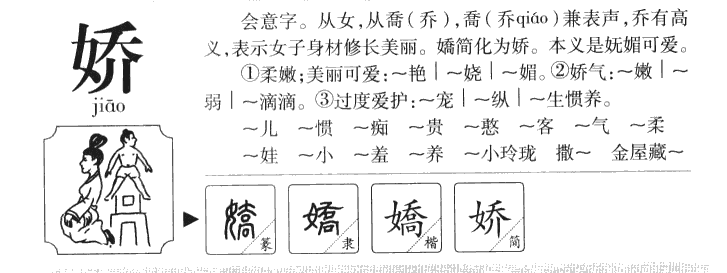 娇
jiāo
会意字。从女,从喬(乔),喬(乔qiáo)兼表声,乔有高
义,表示女子身材修长美丽。嬌简化为娇。本义是妩媚可爱。
①柔嫩;美丽可爱:～艳｜～娆｜～媚。②娇气:～嫩｜～
弱｜～滴滴。③过度爱护:～宠｜～纵｜～生惯养。
～儿 ～惯 ～痴 ～贵 ～憨 ～客 ～气 ～柔
～娃 ～小 ～羞 ～养 ～小玲珑 撒～ 金屋藏～
嬌 篆 嬌 隶 嬌 楷 娇 简